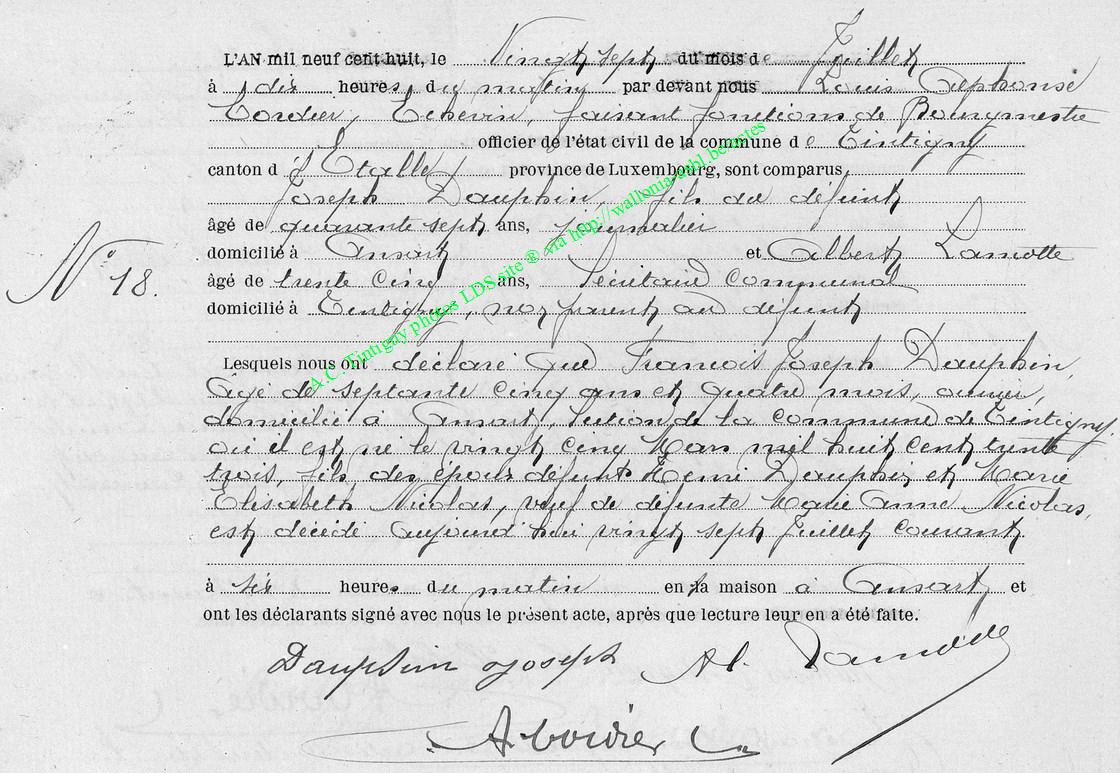 L'AN mil neuf cent huit, le Vingt sept du mois de Juillet
à dix heures du matin par devant nous Louis Alphonse
Cordier, Echevin, faisant fonctions de Bourgmestre
officier de l'état civil de la commune de Tintigny
canton d'Etalle province de Luxembourg, sont comparus,
Joseph Dauphin, fils du défunt
âgé de quarante sept ans, journalier
domicilié à Ansart et Albert Lamotte
N° 18.
âgé de trente cinq ans, Secrétaire communal
domicilié à Tintigny, non parent au défunt
A.C. Tintigny photos LDS site ® via http://wallonia-asbl.be/actes
Lesquels nous ont déclaré que François Joseph Dauphin,
âgé de septante cinq ans et quatre mois, ouvrier,
domicilié à Ansart, section de la commune de Tintigny,
où il est né le vingt cinq Mars mil huit cent trente
trois, fils des époux défunts Henri Dauphin et Marie
Elisabeth Nicolas, veuf de défunte Marie Anne Nicolas,
est décédé aujourd'hui vingt sept Juillet courant
à six heures du matin en sa maison à Ansart et
ont les déclarants signé avec nous le présent acte, après que lecture leur en a été faite.
Dauphin Joseph Al. Lamotte
A Cordier